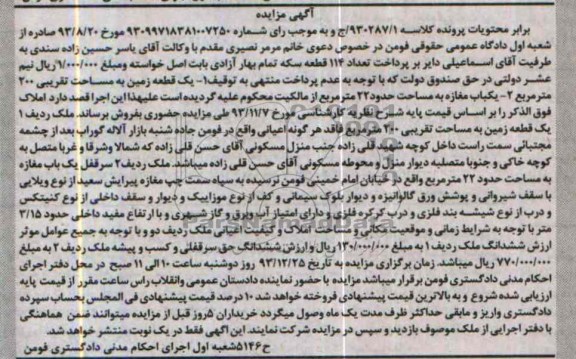 آگهی مزایده
برابر محتویات پرونده کلاسه ۹۳۰۲۸۷/۱/ج و به موجب رای شماره ۹۳۰۹۹۷۱۸۳۸۱۰۰۷۲۵۰ مورخ ۹۳/۸/۲۰ صادره از
شعبه اول دادگاه عمومی حقوقی فومن در خصوص دعوی خانم مرمر نصیری مقدم با وکالت آقای یاسر حسین زاده سندی به
طرفیت آقای اسماعیلی دایر بر پرداخت تعداد ۱۱۴ قطعه سکه تمام بهار آزادی بابت اصل خواسته ومبلغ ۱/۰۰۰/۰۰۰ ریال نیم
عشر دولتی در حق صندوق دولت که با توجه به عدم پرداخت منتهی به توقیف۱- یک قطعه زمین به مساحت تقریبی ۲۰۰
مترمربع ۲- یکباب مغازه به مساحت حدود۲۲ مترمربع از مالکیت محکوم علیه گردیده است علیهذا این اجرا قصد دارد املاک
فوق الذکر را بر اساس قیمت پایه شرح نظریه کارشناسی مورخ ۹۳/۱۱/۷ طی مزایده حضوری بفروش برساند. ملک ردیف ۱
یک قطعه زمین به مساحت تقریبی ۲۰۰ مترمربع فاقد هر گونه اعیانی واقع در فومن جاده شنبه بازار آلاله گوراب بعد از چشمه
مجتبائی سمت راست داخل کوچه شهید قلی زاده جنب منزل مسکونی آقای حسن قلی زاده که شمالا وشرقا و غربا متصل به
کوچه خاکی و جنوبا متصلبه دیوار منزل و محوطه مسکونی آقای حسن قلی زاده میباشد. ملک ردیف۲ سرقفل یک باب مغازه
به مساحت حدود ۲۲ مترمربع واقع در خیابان امام خمینی فومن نرسیده به سپاه سمت چپ مغازه پیرایش سعید از نوع ویلایی
با سقف شیروانی و پوشش ورق گالوانیزه و دیوار بلوک سیمانی و کف از نوع موزاییک و دیوار و سقف داخلی از نوع کنیتکس
و درب از نوع شیشه بند فلزی و درب کرکره فلزی و دارای امتیاز آب وبرق و گاز شهری و با ارتفاع مفید داخلی حدود ۳/۱۵
متر با توجه به شرایط زمانی و موقعیت مکانی و مساحت املاک و کیفیت اعیانی ملک ردیف دو و با توجه به جمیع عوامل موثر
ارزش ششدانگ ملک ردیف ۱ به مبلغ ۱۳۰/۰۰۰/۰۰۰ ریال و ارزش ششدانگ حق سرقفلی و کسب و پیشه ملک ردیف ۲ به مبلغ
۷۷۰/۰۰۰/۰۰۰ ریال میباشد. زمان برگزاری مزایده به تاریخ ۹۳/۱۲/۲۵ روز دوشنبه ساعت ۱۰ الی ۱۱ صبح در محل دفتر اجرای
احکام مدنی دادگستری فومن برقرار میباشد مزایده با حضور نماینده دادستان عمومی وانقلاب راس ساعت مقرر از قیمت پایه
ارزیابی شده شروع و به بالاترین قیمت پیشنهادی فروخته خواهد شد ۱۰ درصد قیمت پیشنهادی فی المجلس بحساب سپرده
دادگستری واریز و مابقی حداکثر ظرف مدت یک ماه وصول میگردد خریداران ۵روز قبل از مزایده میتوانند ضمن هماهنگی
با دفتر اجرایی از ملک موصوف بازدید و سپس در مزایده شرکت نمایند. این آگهی فقط در یک نوبت منتشر خواهد شد.
ح۵۱۴۶ شعبه اول اجرای احکام مدنی دادگستری فومن